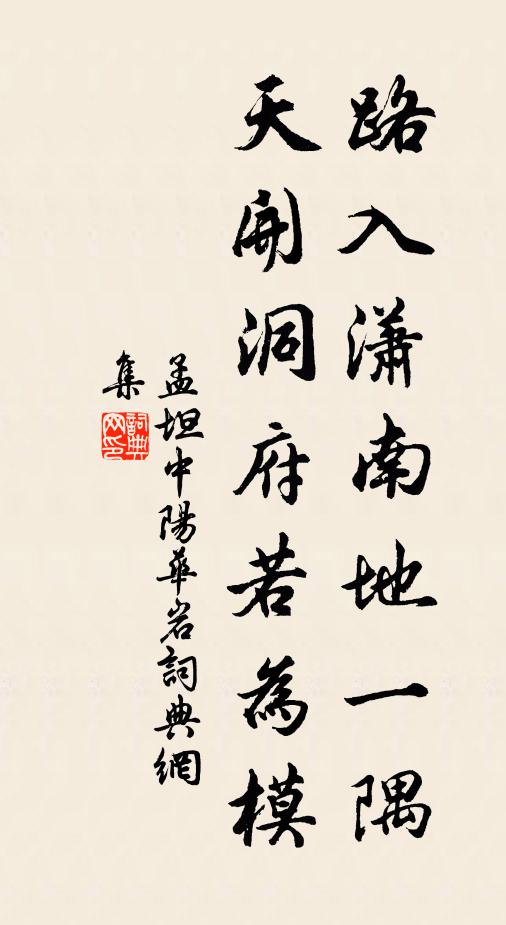 路入瀟南地一隅
天開洞府若為模
孟坦中陽華岩詞典網
集
詞典
网印